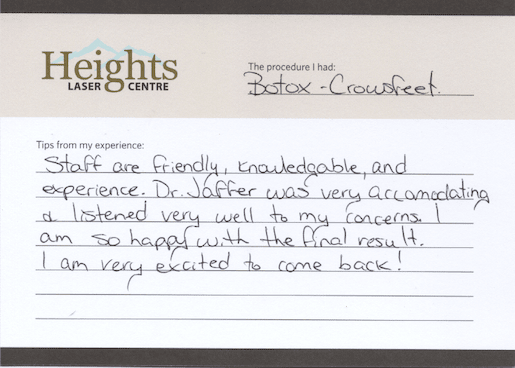 Heights
LASER CENTRE
The procedure I had:
Botox - Crowsfeet.
Tips from my experience:
Staff are friendly, knowledgable, and
experience. Dr. Jaffer was very accomodating
& listened very well to my concerns. I
am so happy with the final result.
I am very excited to come back!